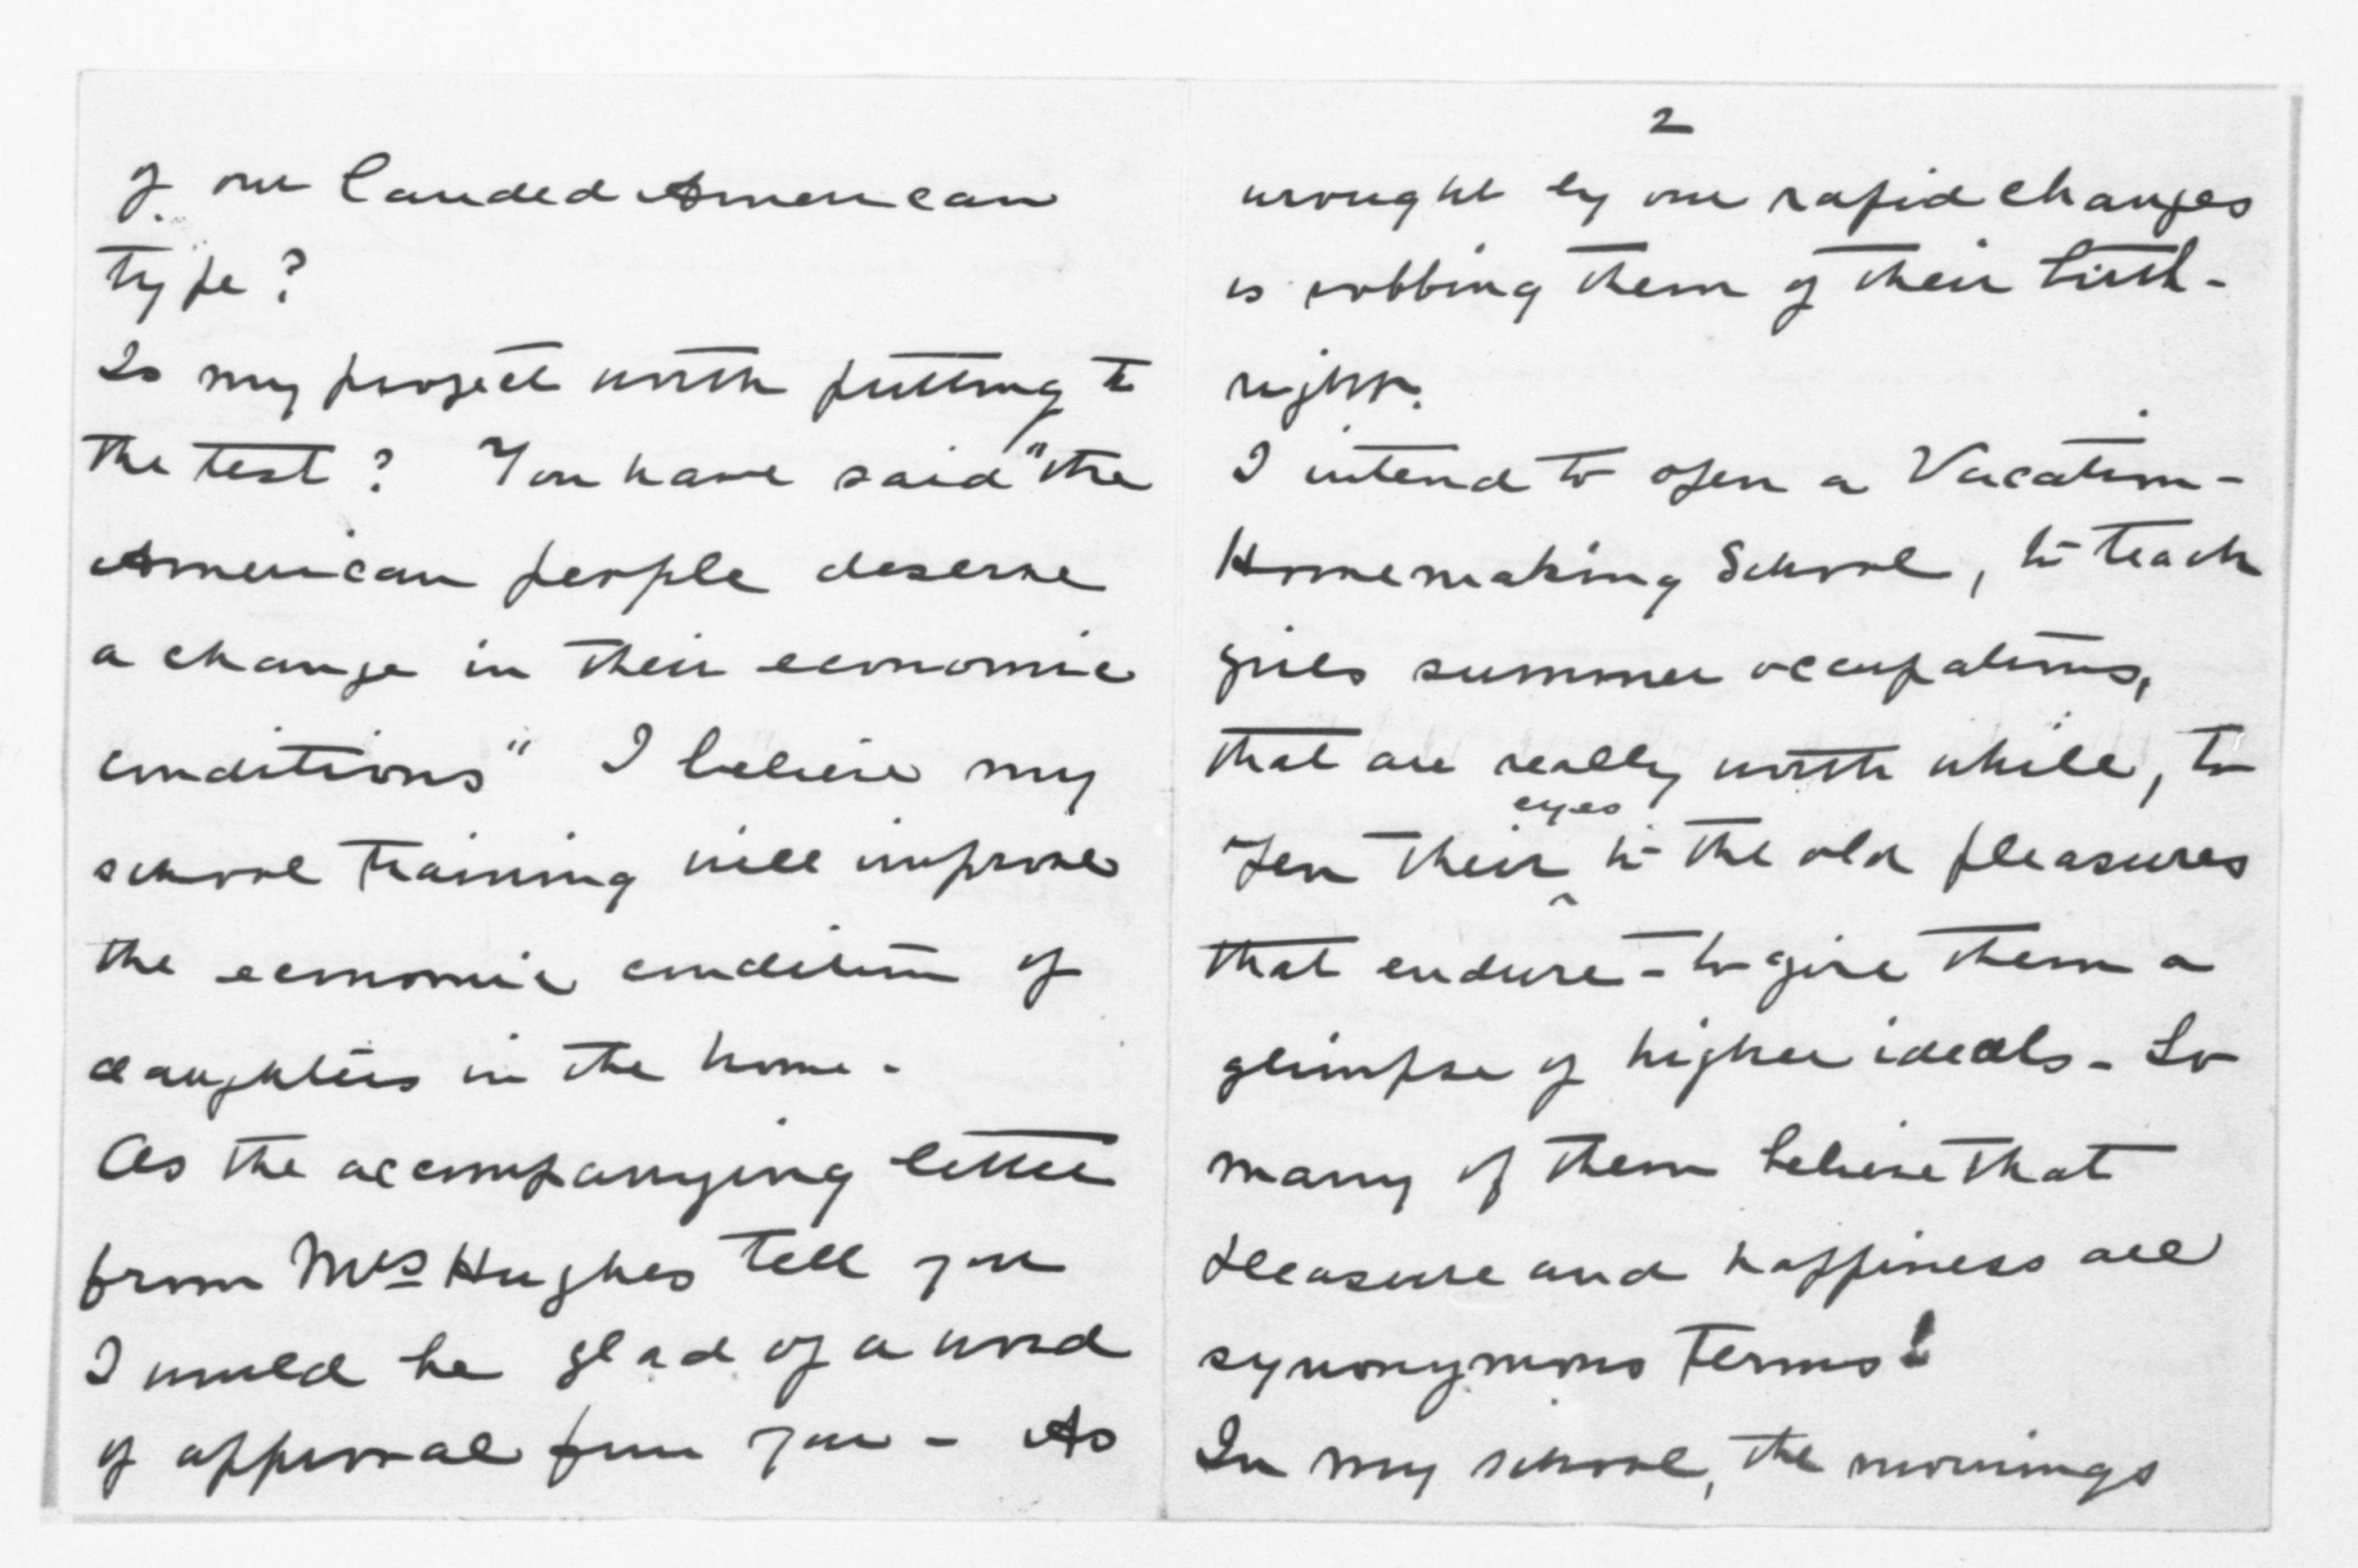 of our landed American
type?
Is my project worth putting to
the test? You have said "the
American people deserve
a change in their economic
conditions" I believe my
school training will improve
the economic condition of
daughters in the home.
As the accompanying letter
from Mrs Hughes tell you
I would be glad of a word
of approval from you - As
2
wrought by our rapid changes
is robbing them of their birth-
right.
I intend to open a Vacation-
Homemaking School, to teach
girls summer occupations,
that are really worth while, to
eyes
open their ^ to the old pleasures
that endure - to give them a
glimpse of higher ideals - So
many of them believe that
pleasure and happiness are
synonymous terms!
In my school, the mornings